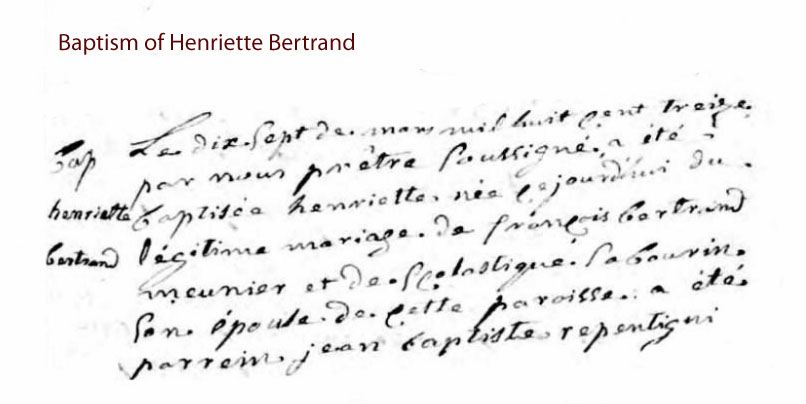 Baptism of Henriette Bertrand
bap
henriette
bertrand
Le dix Sept de mars mil huit cent treize
par nous prêtre Soussigné a été
baptisée henriette née cejourdhui du
légitime mariage de françois bertrand
meunier et de Scolastique Sabourin
Son épouse de cette paroisse a été
parrein jean baptiste repentigni